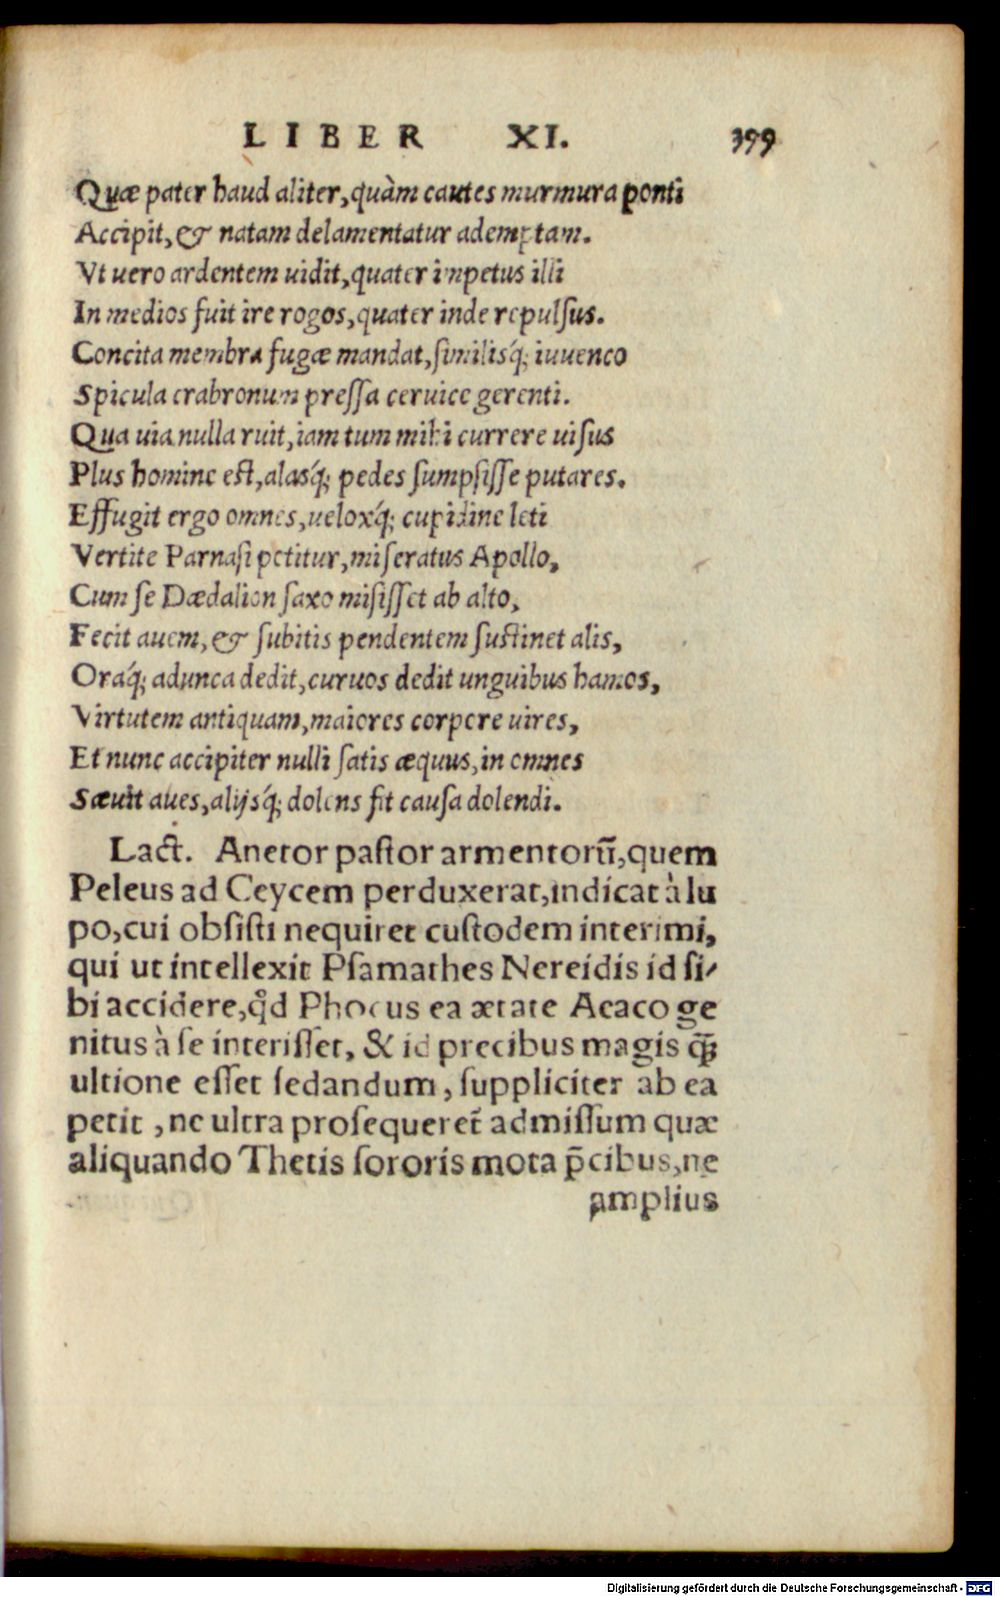 LIBER XI. 399
Quæ pater haud aliter,quàm cautes murmura ponti
Accipit,& natam delamentatur ademptam.
Vt uero ardentem uidit,quater impetus illi
In medios fuit ire rogos,quater inde repulſus.
Concita membra fugæ mandat,ſimilisq́; iuuenco
Spicula crabronum preſſa ceruice gerenti.
Qua uia nulla ruit,iam tum mihi currere uiſus
Plus homine eſt,alasq́; pedes ſumpſiſſe putares.
Effugit ergo omnes,ueloxq́; cupidine leti
Vertite Parnaſi petitur,miſeratus Apollo,
Cum ſe Dædalion ſaxo miſiſſet ab alto,
Fecit auem,& ſubitis pendentem ſuſtinet alis,
Oraq́; adunca dedit,curuos dedit unguibus hamos,
Virtutem antiquam,maiores corpore uires,
Et nunc accipiter nulli ſatis æquus,in omnes
Sæuit aues,alijsq́; dolens fit cauſa dolendi.
Lact. Anetor paſtor armentorũ,quem
Peleus ad Ceycem perduxerat,indicat à lu
po,cui obſiſti nequiret cuſtodem interimi,
qui ut intellexit Pſamathes Nereidis id ſi-
bi accidere,qd̉ Phocus ea ætate Aeaco ge
nitus à ſe interiſſet, & id precibus magis q̃ꝫ
ultione eſſet ſedandum, ſuppliciter ab ea
petit ,ne ultra proſequeret̃ admiſſum quæ
aliquando Thetis ſororis mota p̃cibus,ne
amplius
Digitalisierung gefördert durch die Deutsche Forschungsgemeinschaft - DFG